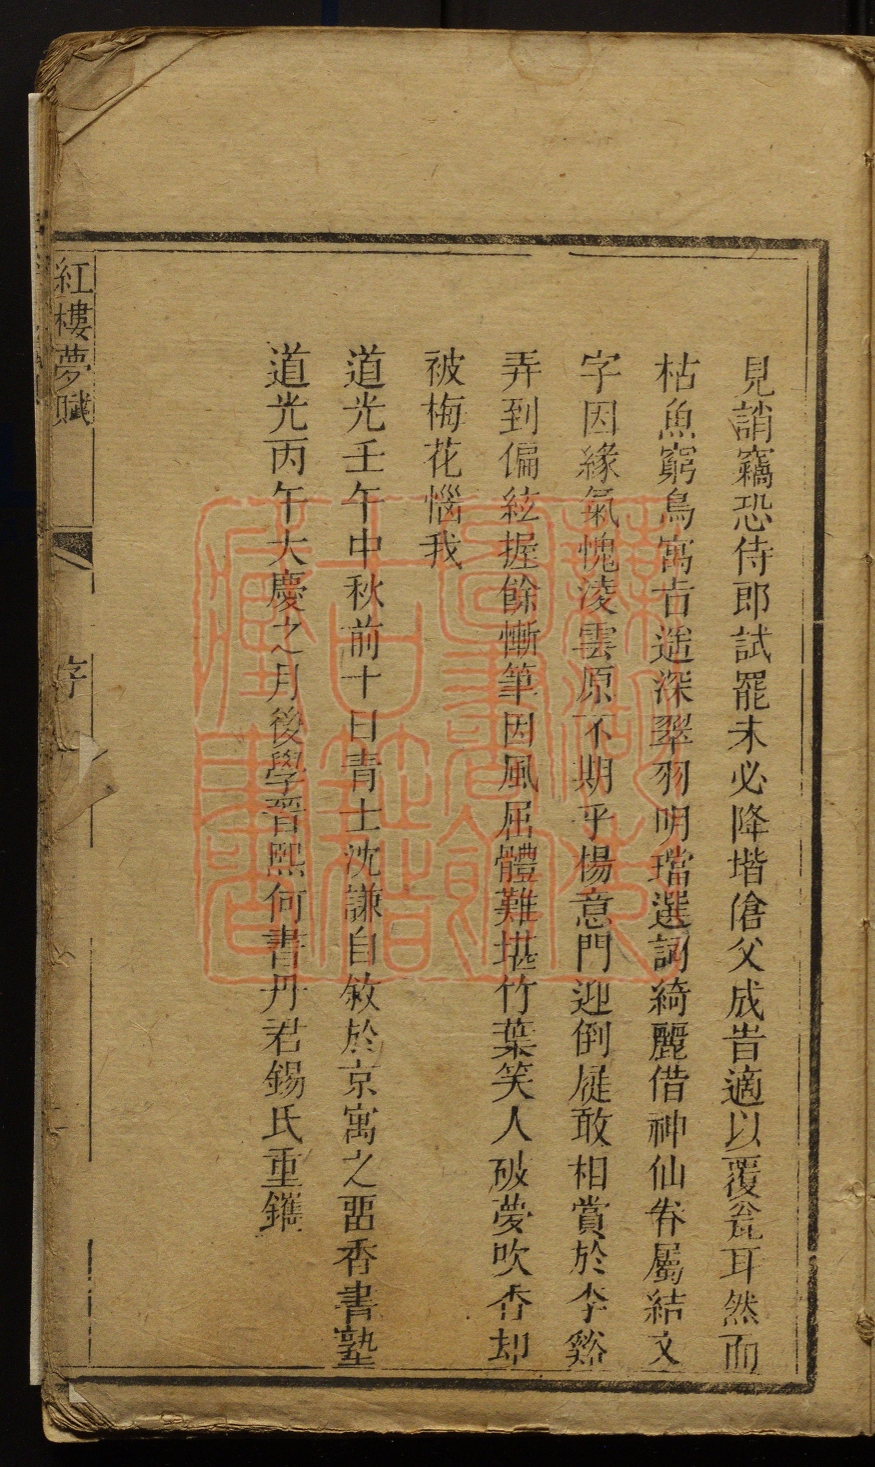 見誚竊恐侍郎試罷未必降堦傖父成眥適以覆瓮耳然而
枯魚窮鳥寓吉遥深翠羽明璫選詞綺麗借神仙眷屬結文
字因緣氣愧淩雲原不期乎楊意門迎倒屣敢相賞於李谿
弄到偏絃握餘慚筆因風屈體難堪竹葉笑人破夢吹香却
被梅花惱我
道光壬午中秋前十日青士沈謙自敘於京寓之畱香書塾
道光丙午大慶之月後學晉熙何書丹君錫氏重鐫
紅樓夢賦
序